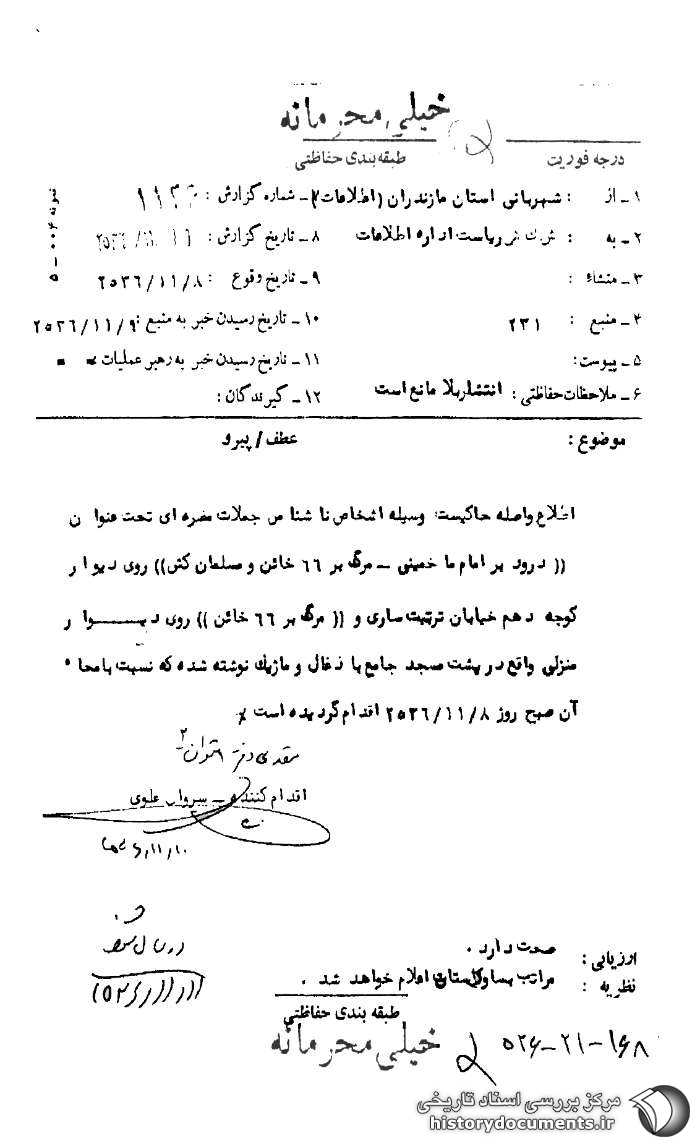 خیلی محرمانه
درجه فوریت
طبقه بندی حفاظتی
نمونه ۰۰۴ – ۵
۱ – از : شهربانی استان مازندران (اطلاعات) ۷ – شماره گزارش :
۲ – به : ریاست اداره اطلاعات ۸ – تاریخ گزارش :
۳ – منشاء : ۹ – تاریخ وقوع : ۲۵۳۶/۱۱/۸
۴ – منبع : ۲۳۱ ۱۰ – تاریخ رسیدن خبر به منبع : ۲۵۳۶/۱۱/۹
۵ – پیوست : ۱۱ – تاریخ رسیدن خبر به رهبر عملیات
۶ – ملاحظات حفاظتی : انتشار بلا مانع است ۱۲ – گیرندگان :
موضوع : عطف / پیرو
اطلاع واصله حاکیست وسیله اشخاص ناشناس جملات مضره ای تحت عنوان
(( درود بر امام ما خمینی – مرگ بر ۶۶ خائن و مسلمان کش)) روی دیوار
کوچه دهم خیابان تربیت ساری و (( مرگ بر ۶۶ خائن )) روی دیوار
منزلی واقع در پشت مسجد جامع با ذغال و ماژیک نوشته شده که نسبت بامحاء
آن صبح روز ۲۵۳۶/۱۱/۸ اقدام گردیده است
اقدام کننده – سروان علوی
ارسال شود
ارزیابی : صحت دارد .
نظریه : مراتب بساواک استان اعلام خواهد شد .
طبقه بندی حفاظتی
خیلی محرمانه
۵۲۶-۲۱-۱۶۸
مرکز بررسی اسناد تاریخی
historydocuments.ir